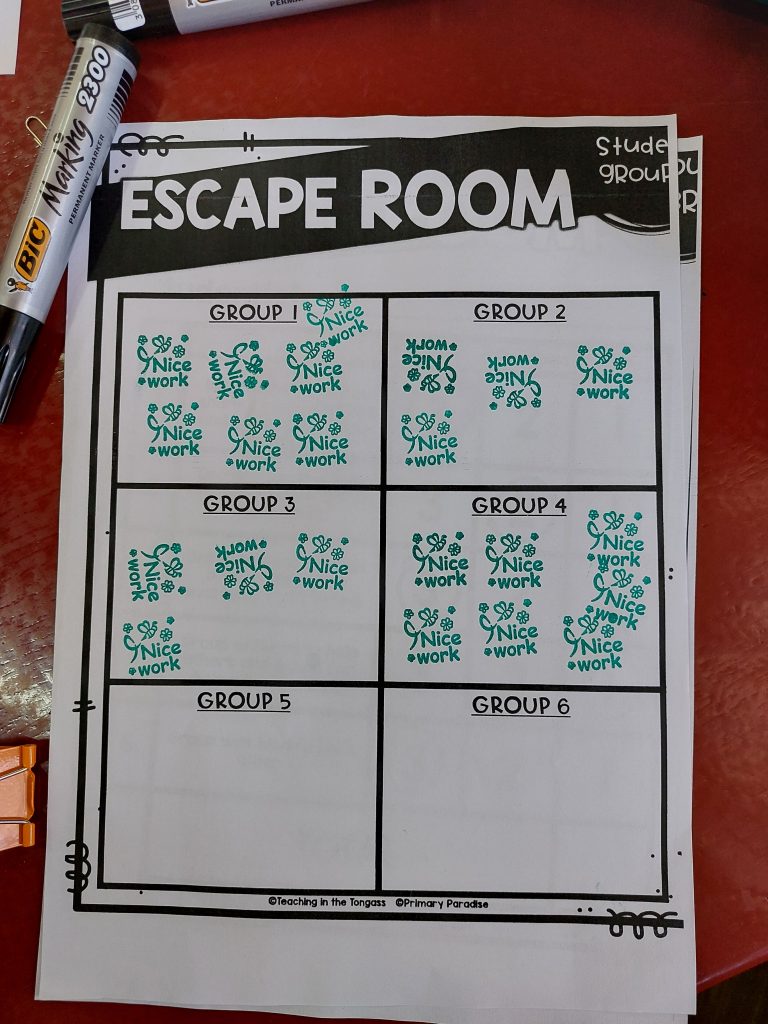 BIC
Marking 2300
PERMANENT MARKER
Stude
grouP
ESCAPE ROOM
GROUP 1
Nice
work
Nice
work
Nice
work
Nice
work
Nice
work
Nice
work
Nice
work
GROUP 2
Nice
work
Nice
work
Nice
work
Nice
work
GROUP 3
Nice
work
Nice
work
Nice
work
Nice
work
GROUP 4
Nice
work
Nice
work
Nice
work
Nice
work
Nice
work
Nice
work
Nice
work
GROUP 5
GROUP 6
©Teaching in the Tongass ©Primary Paradise